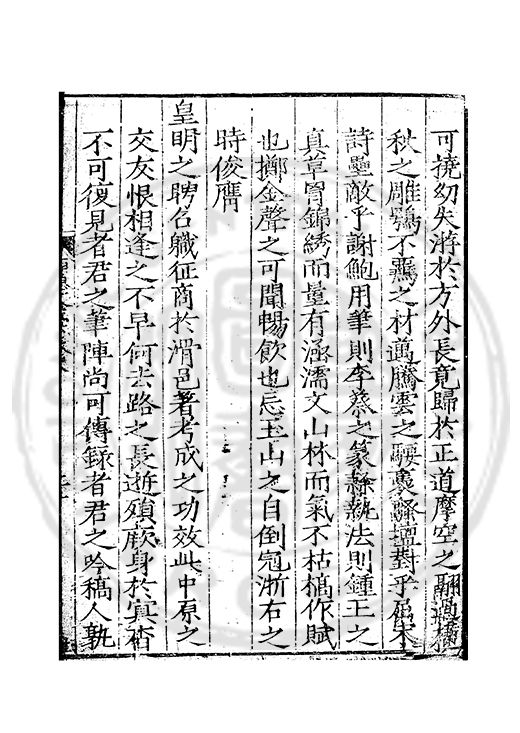 可撓幼失游於方外長竟歸於正道摩空之翮過橫
秋之雕鶚不羈之材邁騰雲之騕褭騷壇對乎屈宋
詩壘敵乎謝鮑用筆則李蔡之篆隸執法則鍾王之
真草胃錦綉而量有涵濡文山林而氣不枯槁作賦
也擲金聲之可聞暢飲也忘玉山之自倒冠浙右之
時俊膺
皇明之聘名職征商於滑邑著考成之功效此中原之
交友恨相逢之不早何去路之長逝殞厥身於冥杳
不可復見者君之筆陣尚可傳錄者君之吟稿人孰